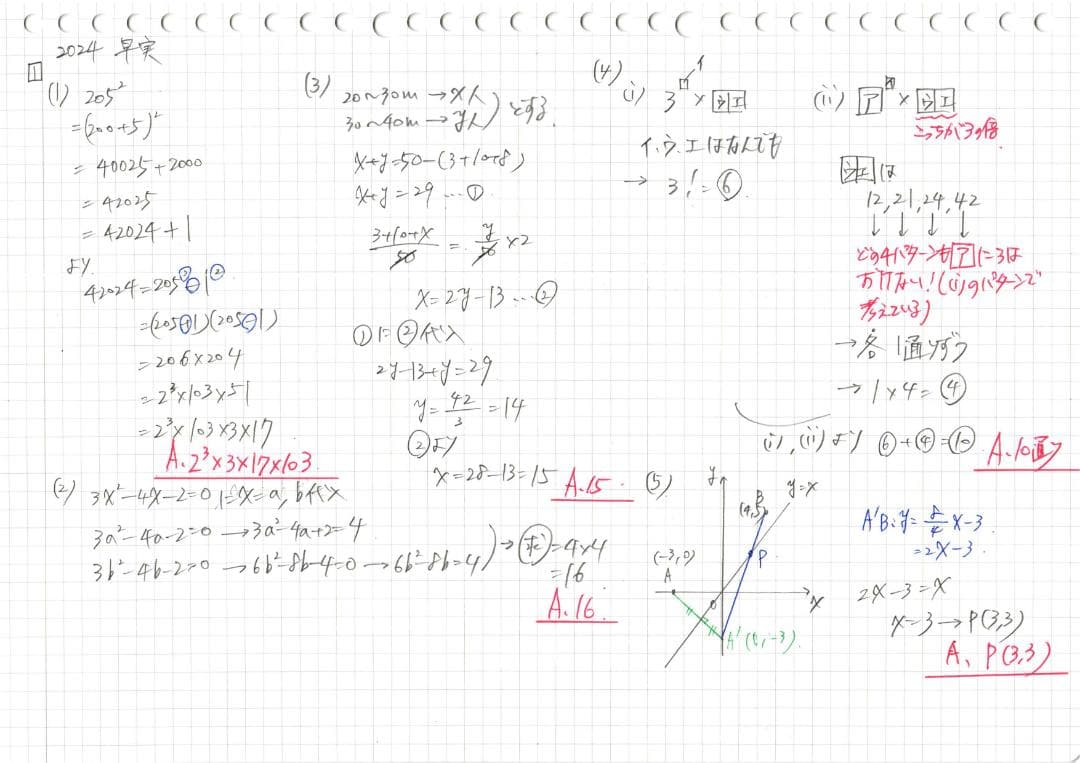 2024 早実
1
(1) 205²
=(200+5)²
= 40025+2000
= 42025
= 42024+1
より
42024=205²-1²
=(205+1)(205-1)
=206×204
=2³×103×51
=2³×103×3×17
A. 2³×3×17×103
(2) 3x²-4x-2=0 にx=a, b代入
3a²-4a-2=0 → 3a²-4a+2=4
3b²-4b-2=0 → 6b²-8b-4=0 → 6b²-8b=4
→ 求=4×4
=16
A. 16
(3) 20~30m → x人
30~40m → y人
とする
x+y=50-(3+10+8)
x+y=29 … ①
3+10+x/50 = y/50 ×2
x=2y-13 … ②
①に②代入
2y-13+y=29
y=42/3=14
②より
x=28-13=15
A. 15
(4)
(i) 3 □ × ウエ
イ
イ、ウ、エはなんでも
→ 3!=⑥
(ii) ア イ × ウエ
こっちが3の倍
ウエは
12, 21, 24, 42
↓ ↓ ↓ ↓
どの4パターンもアに3は
おけない!((i)のパターンで
考えている)
→ 各1通りずつ
→ 1×4=④
(i), (ii)より ⑥+④=⑩
A. 10通り
(5)
y
B
(4,5)
y=x
P
(-3,0)
A
O
x
A'(0,-3)
A'B: y=8/4x-3
=2x-3
2x-3=x
x=3 → P(3,3)
A. P(3,3)